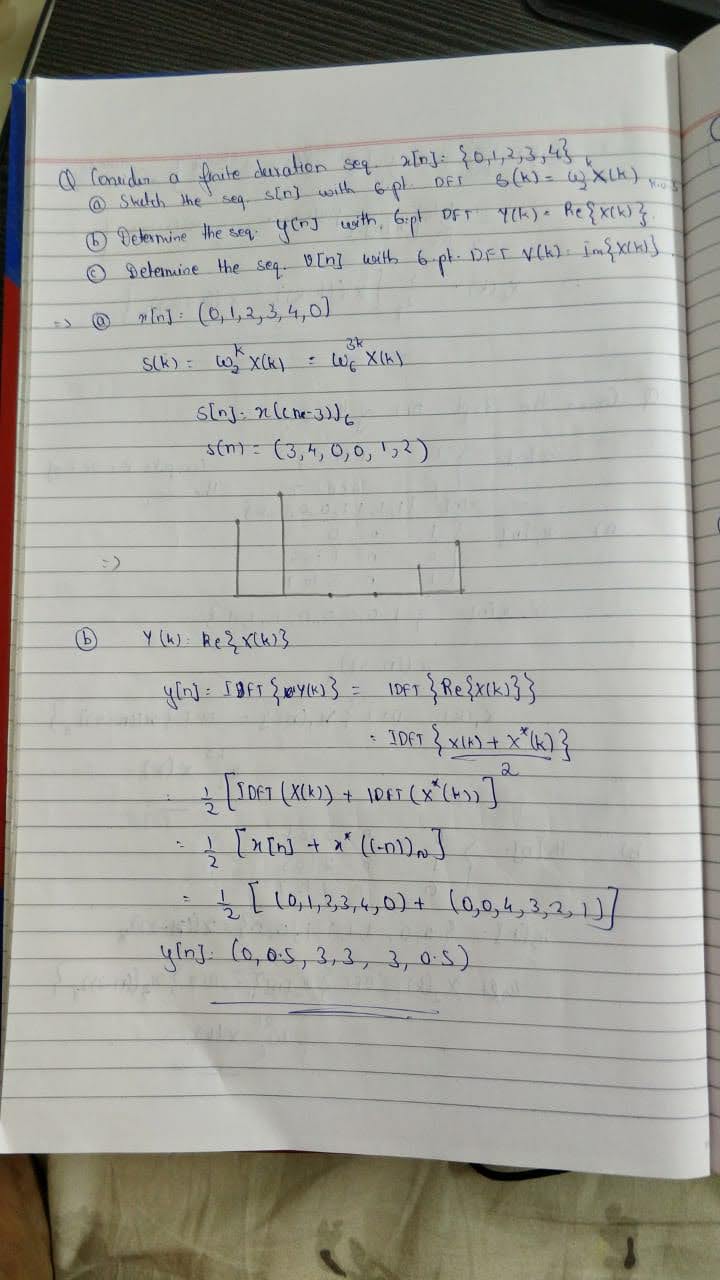 Q Consider a finite duration seq. x[n]: {0,1,2,3,4}
ⓐ Sketch the seq. s[n] with 6 pt. DFT S(k) = ω₂ᵏ X(k)
ⓑ Determine the seq. y[n] with 6.pt DFT Y(k) = Re{X(k)}.
ⓒ Determine the seq. v[n] with 6 pt. DFT V(k): im{X(k)}.
=> ⓐ x[n]: (0,1,2,3,4,0]
S(k) = ω₂ᵏ X(k) = ω₆³ᵏ X(k)
S[n]: x((n-3))₆
s(n) = (3,4,0,0,1,2)
=>
ⓑ Y(k): Re{X(k)}
y[n]: IDFT {Y(k)} = IDFT {Re{X(k)}}
= IDFT {X(k) + X*(k)}
2
1/2 [IDFT (X(k)) + IDFT (X*(k))]
= 1/2 [x[n] + x*((-n))N]
= 1/2 [(0,1,2,3,4,0) + (0,0,4,3,2,1)]
y[n]: (0, 0.5, 3, 3, 3, 0.5)